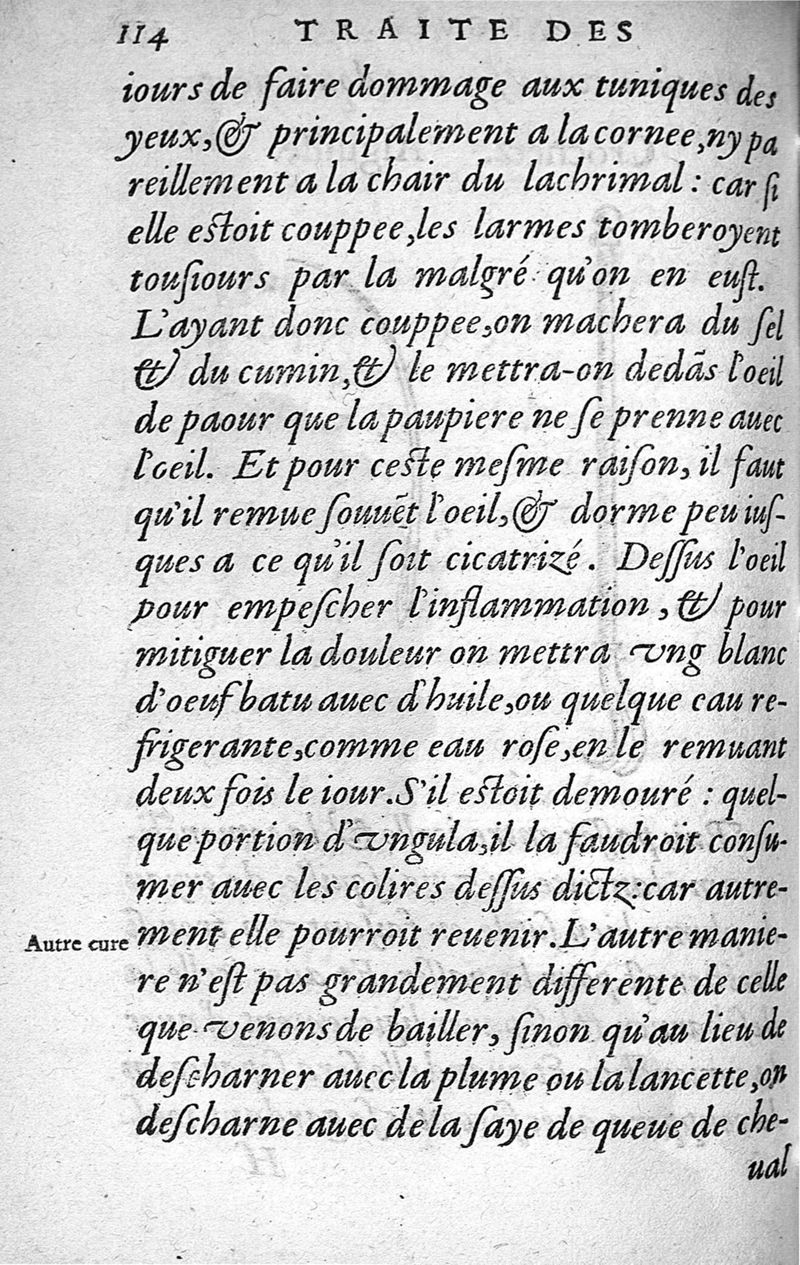 114 TRAITE DES
iours de faire dommage aux tuniques des
yeux, & principalement a la cornee, ny pa
reillement a la chair du lachrimal : car ſi
elle eſtoit couppee, les larmes tomberoyent
touſiours par la malgré qu'on en euſt.
L'ayant donc couppee, on machera du ſel
& du cumin, & le mettra-on dedãs l'oeil
de paour que la paupiere ne ſe prenne auec
l'oeil. Et pour ceſte meſme raiſon, il faut
qu'il remue ſouuẽt l'oeil, & dorme peu iuſ-
ques a ce qu'il ſoit cicatrizé. Deſſus l'oeil
pour empeſcher l'inflammation, & pour
mitiguer la douleur on mettra vng blanc
d'oeuf batu auec d'huile, ou quelque eau re-
frigerante, comme eau roſe, en le remuant
deux fois le iour. S'il eſtoit demouré : quel-
que portion d'vngula, il la faudroit conſu-
mer auec les colires deſſus dictz: car autre-
Autre cure
ment elle pourroit reuenir. L'autre manie-
re n'eſt pas grandement differente de celle
que venons de bailler, ſinon qu'au lieu de
deſcharner auec la plume ou la lancette, on
deſcharne auec de la ſaye de queue de che-
ual